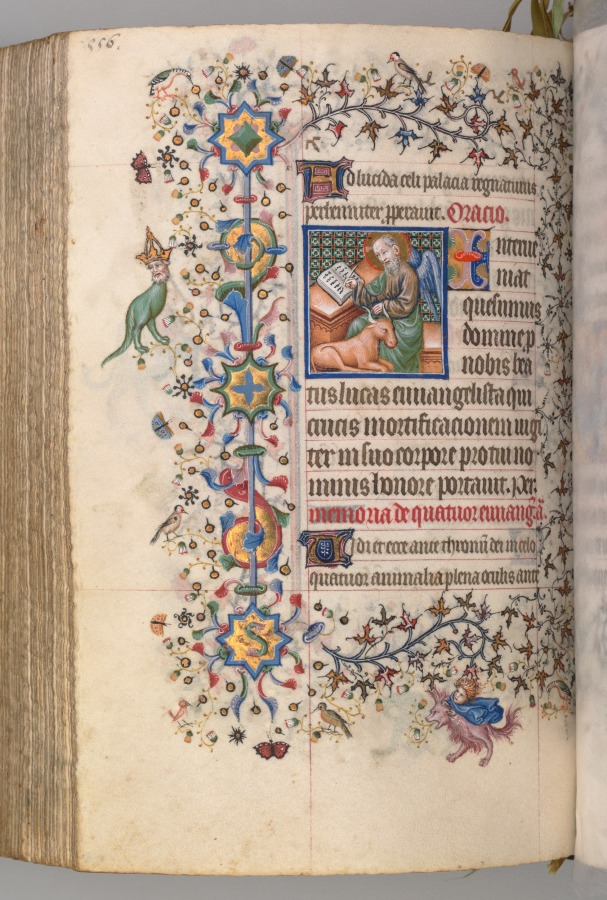 556.
Ad lucida celi palacia regnaturus
perhenniter pperauit. Oracio.
Interue
niat
quesumus
domine p
nobis bea
tus lucas euuangelista qui
crucis mortificacionem iugi
ter in suo corpore pro tui no
minis honore portauit. Per.
memoria de quatuor euuang̅a̅.
Vidi et ecce ante thronū dei in celo
quatuor animalia plena oculis ante